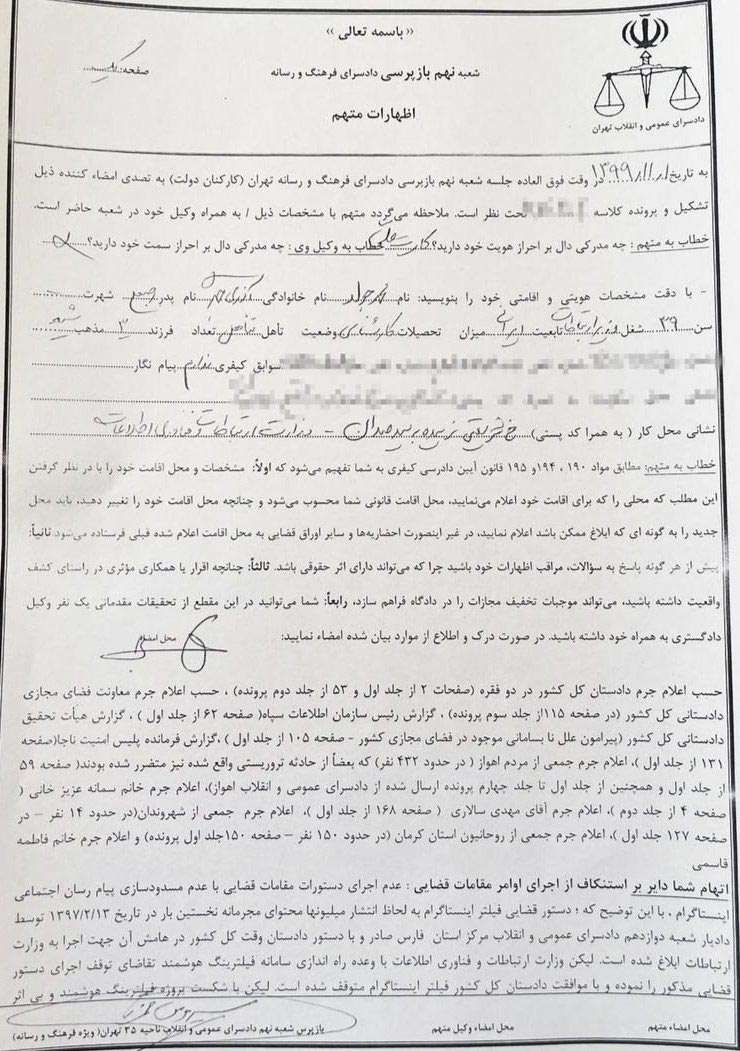 «باسمه تعالی»
شعبه نهم بازپرسی دادسرای فرهنگ و رسانه
صفحه: یک
اظهارات متهم
دادسرای عمومی و انقلاب تهران
به تاریخ ۱۳۹۹/۱۱/۰۱ در وقت فوق العاده جلسه شعبه نهم بازپرسی دادسرای فرهنگ و رسانه تهران (کارکنان دولت) به تصدی امضاء کننده ذیل
تشکیل و پرونده کلاسه تحت نظر است. ملاحظه می‌گردد متهم با مشخصات ذیل / به همراه وکیل خود در شعبه حاضر است.
خطاب به متهم: چه مدرکی دال بر احراز هویت خود دارید؟ کارت ملی خطاب به وکیل وی: چه مدرکی دال بر احراز سمت خود دارید؟
- با دقت مشخصات هویتی و اقامتی خود را بنویسید: نام محمدجواد نام خانوادگی آذری جهرمی نام پدر شهرت
سن ۳۹ شغل وزیر ارتباطات تابعیت ایرانی میزان تحصیلات کارشناسی وضعیت تأهل متأهل تعداد فرزند ۳ مذهب شیعه
سوابق کیفری ندارم پیام نگار
نشانی محل کار (به همرا کد پستی) خ شریعتی نرسیده به پل سیدخندان - وزارت ارتباطات و فناوری اطلاعات
خطاب به متهم: مطابق مواد ۱۹۰، ۱۹۴و ۱۹۵ قانون آیین دادرسی کیفری به شما تفهیم می‌شود که اولاً: مشخصات و محل اقامت خود را با در نظر گرفتن
این مطلب که محلی را که برای اقامت خود اعلام می‌نمایید، محل اقامت قانونی شما محسوب می‌شود و چنانچه محل اقامت خود را تغییر دهید، باید محل
جدید را به گونه ای که ابلاغ ممکن باشد اعلام نمایید، در غیر اینصورت احضاریه‌ها و سایر اوراق قضایی به محل اقامت اعلام شده قبلی فرستاده می‌شود ثانیاً:
پیش از هر گونه پاسخ به سؤالات، مراقب اظهارات خود باشید چرا که می‌تواند دارای اثر حقوقی باشد. ثالثاً: چنانچه اقرار یا همکاری مؤثری در راستای کشف
واقعیت داشته باشید، می‌تواند موجبات تخفیف مجازات را در دادگاه فراهم سازد، رابعاً: شما می‌توانید در این مقطع از تحقیقات مقدماتی یک نفر وکیل
دادگستری به همراه خود داشته باشید. در صورت درک و اطلاع از موارد بیان شده امضاء نمایید: محل امضاء
حسب اعلام جرم دادستان کل کشور در دو فقره (صفحات ۲ از جلد اول و ۵۳ از جلد دوم پرونده)، حسب اعلام جرم معاونت فضای مجازی
دادستانی کل کشور (در صفحه ۱۱۵از جلد سوم پرونده)، گزارش رئیس سازمان اطلاعات سپاه( صفحه ۶۲ از جلد اول)، گزارش هیأت تحقیق
دادستانی کل کشور (پیرامون علل نا بسامانی موجود در فضای مجازی کشور - صفحه ۱۰۵ از جلد اول) ،گزارش فرمانده پلیس امنیت ناجا(صفحه
۱۳۱ از جلد اول)، اعلام جرم جمعی از مردم اهواز ( در حدود ۴۳۲ نفر) که بعضاً از حادثه تروریستی واقع شده نیز متضرر شده بودند( صفحه ۵۹
از جلد اول و همچنین از جلد اول تا جلد چهارم پرونده ارسال شده از دادسرای عمومی و انقلاب اهواز)، اعلام جرم خانم سمانه عزیز خانی (
صفحه ۴ از جلد دوم)، اعلام جرم آقای مهدی سالاری ( صفحه ۱۶۸ از جلد اول )، اعلام جرم جمعی از شهروندان(در حدود ۱۴ نفر - در
صفحه ۱۲۷ جلد اول)، اعلام جرم جمعی از روحانیون استان کرمان (در حدود ۱۵۰ نفر – صفحه ۱۵۰جلد اول پرونده) و اعلام جرم خانم فاطمه
قاسمی
اتهام شما دایر بر استنکاف از اجرای اوامر مقامات قضایی : عدم اجرای دستورات مقامات قضایی با عدم مسدودسازی پیام رسان اجتماعی
اینستاگرام ، با این توضیح که ؛ دستور قضایی فیلتر اینستاگرام به لحاظ انتشار میلیونها محتوای مجرمانه نخستین بار در تاریخ ۱۳۹۷/۲/۱۳ توسط
دادیار شعبه دوازدهم دادسرای عمومی و انقلاب مرکز استان فارس صادر و با دستور دادستان وقت کل کشور در هامش آن جهت اجرا به وزارت
ارتباطات ابلاغ شده است. لیکن وزارت ارتباطات و فناوری اطلاعات با وعده راه اندازی سامانه فیلترینگ هوشمند تقاضای توقف اجرای دستور
قضایی مذکور را نموده و با موافقت دادستان کل کشور فیلتر اینستاگرام متوقف شده است. لیکن با شکست پروژه فیلترینگ هوشمند و بی اثر
محل امضاء متهم
محل امضاء وکیل متهم
بازپرس شعبه نهم دادسرای عمومی و انقلاب ناحیه ۲۵ تهران( ویژه فرهنگ و رسانه)